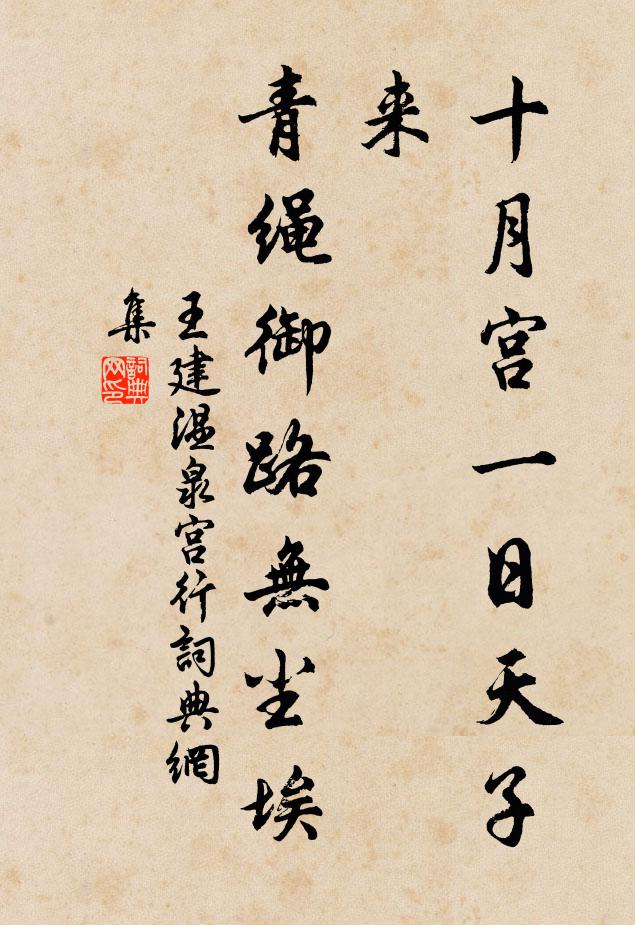 十月宫一日天子
来
青绳御路無尘埃
王建温泉宫行詞典網
集
詞典
网印